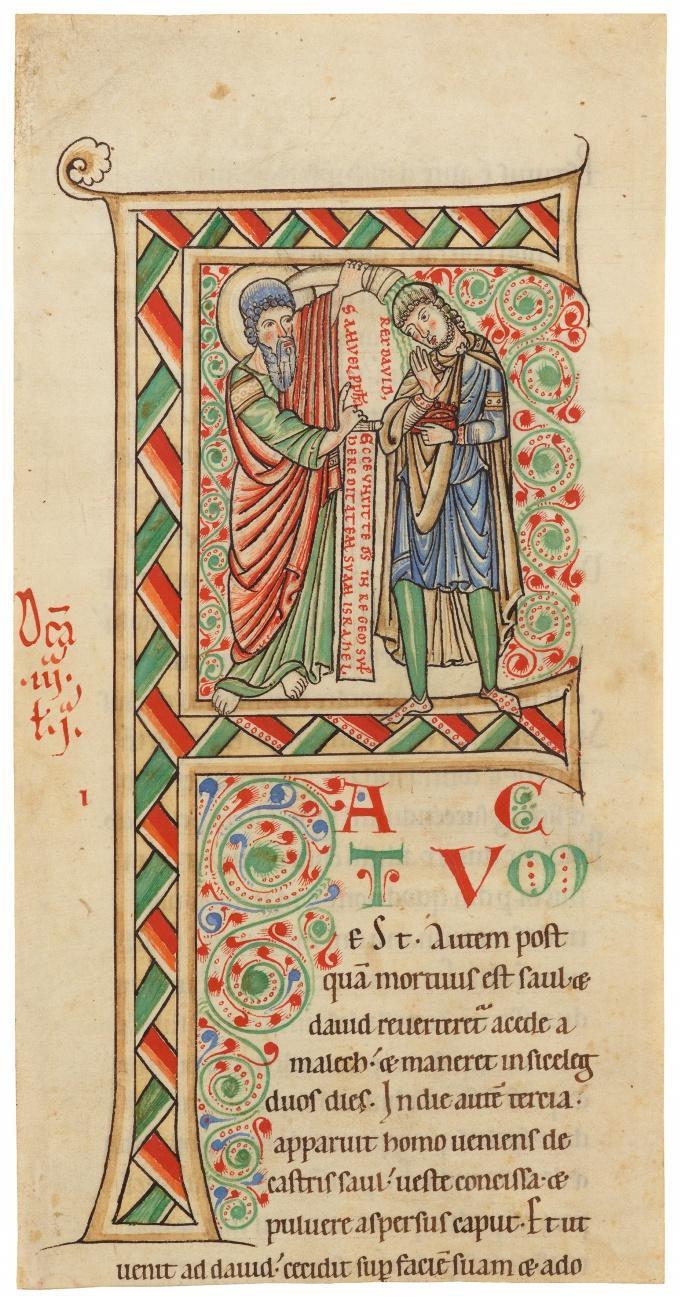 REX DAVID,
SAMVEL PPHA
ECCE VNXIT TE DS IN REGEM SVP
HEREDITATEM SVAM ISRAHEL
Dcā
.iii.
t.j.
ı
F A C
T V M
E S t. Autem post
quā mortuus est saul. &
dauid reuerteret᷑ a cede a
malech: & maneret in siceleg
duos dies. In die autē tercia.
apparuit homo ueniens de
castris saul: ueste concissa. &
puluere aspersus caput. Et ut
uenit ad dauid: cecidit sup faciē suam & ado